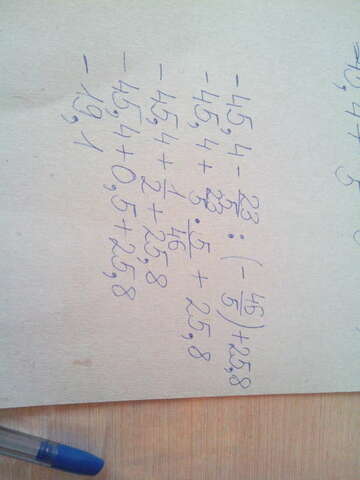 -45,4 - 23/5 : (- 46/5) + 25,8
-45,4 + 23/5 · 5/46 + 25,8
-45,4 + 1/2 + 25,8
-45,4 + 0,5 + 25,8
-19,1